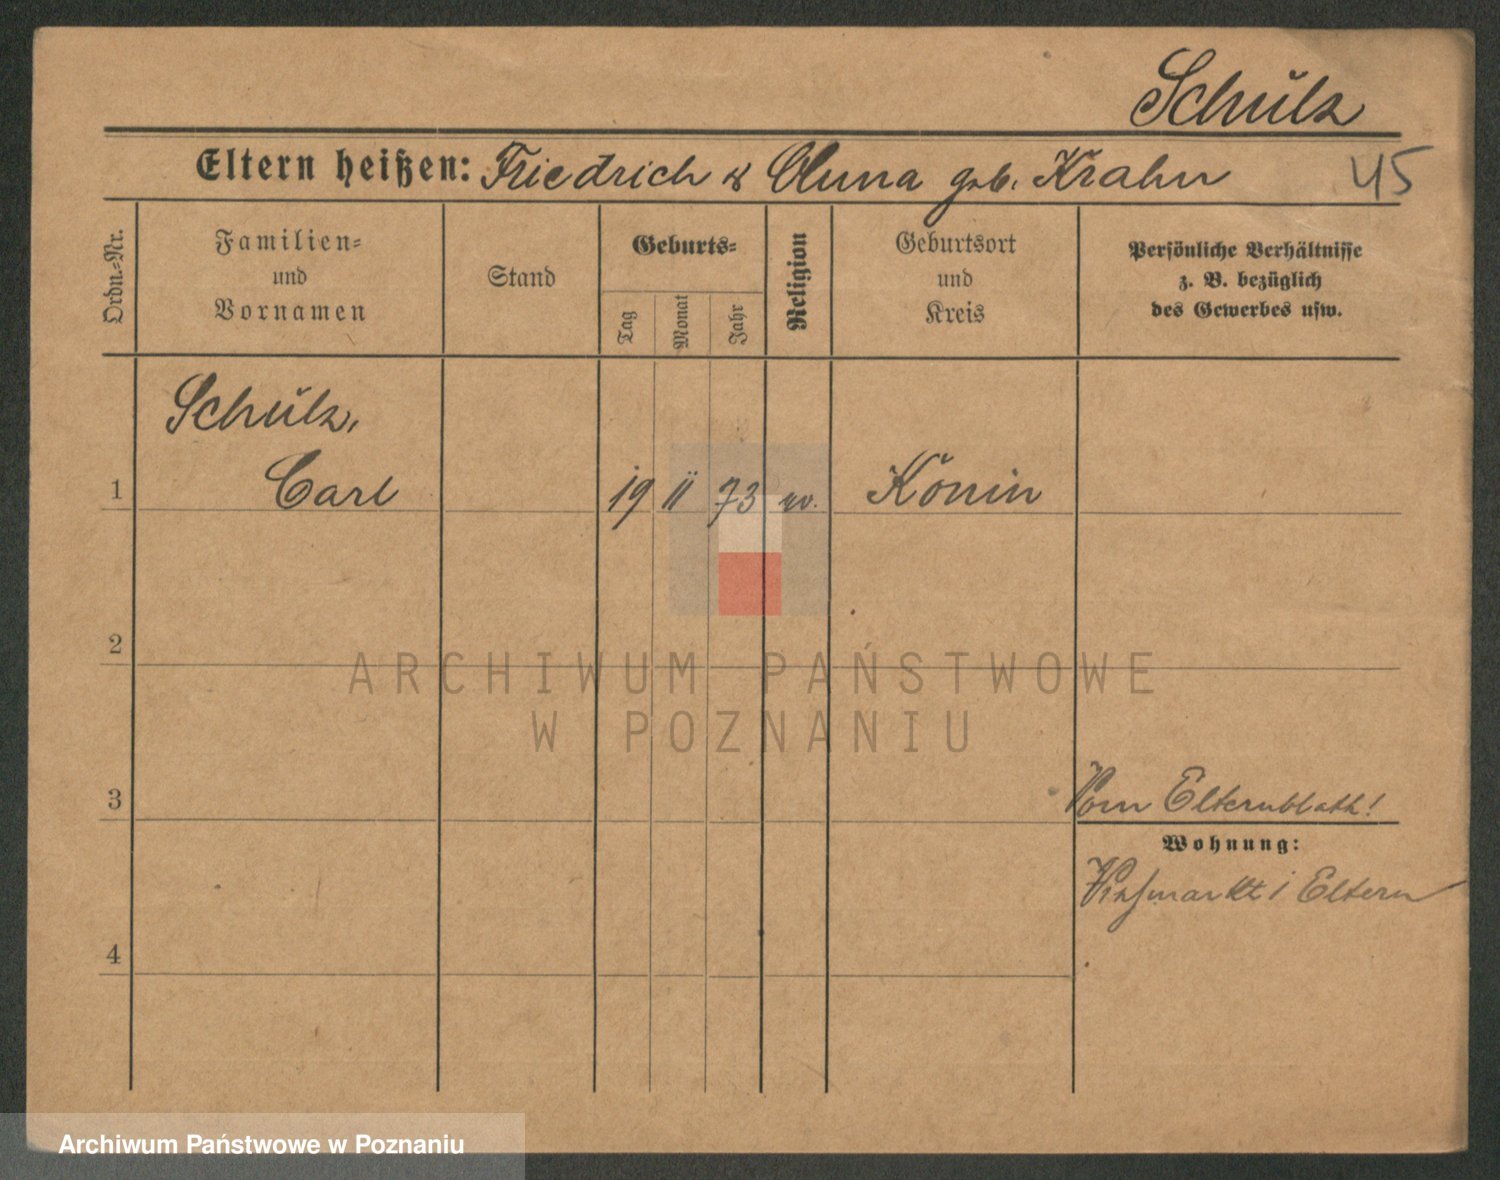 Schulz
Eltern heißen: Friedrich & Anna geb. Krahn
45
Ordn.-Nr.
Familien-
und
Vornamen
Stand
Geburts-
Tag
Monat
Jahr
Religion
Geburtsort
und
Kreis
Persönliche Verhältnisse
z. B. bezüglich
des Gewerbes usw.
Schulz,
1 Carl 19 11 73 ev. Konin
2
ARCHIWUM PAŃSTWOWE
W POZNANIU
3
Vom Elternblatt!
Wohnung:
Eltern
4
Archiwum Państwowe w Poznaniu